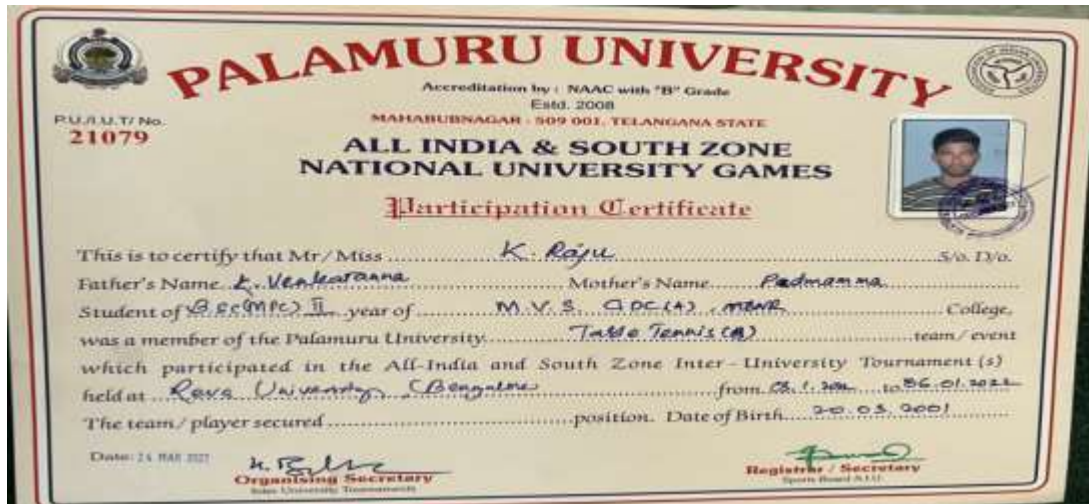 PALAMURU UNIVERSITY
Accreditation by : NAAC with "B" Grade
Estd. 2008
MAHABUBNAGAR - 509 001, TELANGANA STATE
P.U./I.U.T/ No.
21079
ALL INDIA & SOUTH ZONE
NATIONAL UNIVERSITY GAMES
Participation Certificate
This is to certify that Mr/Miss K. Raju S/o. D/o.
Father's Name K. Venkatanna Mother's Name Padmamma
Student of B.Sc(MPC) II year of M.V.S. GDC(A), MBNR College,
was a member of the Palamuru University Table Tennis team/event
which participated in the All-India and South Zone Inter-University Tournament (s)
held at Reva University, (Bengaluru from 03.1.2022 to 06.01.2022
The team/player secured position. Date of Birth 20.03.2001
Date: 24 MAR 2022
Organising Secretary
Inter University Tournaments
Registrar / Secretary
Sports Board